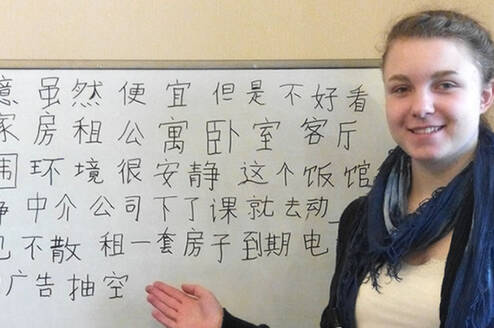 意虽然便宜但是不好看
家房租公寓卧室客厅
围环境很安静这个饭馆
静中介公司下了课就去动
不散租一套房子到期电
广告抽空